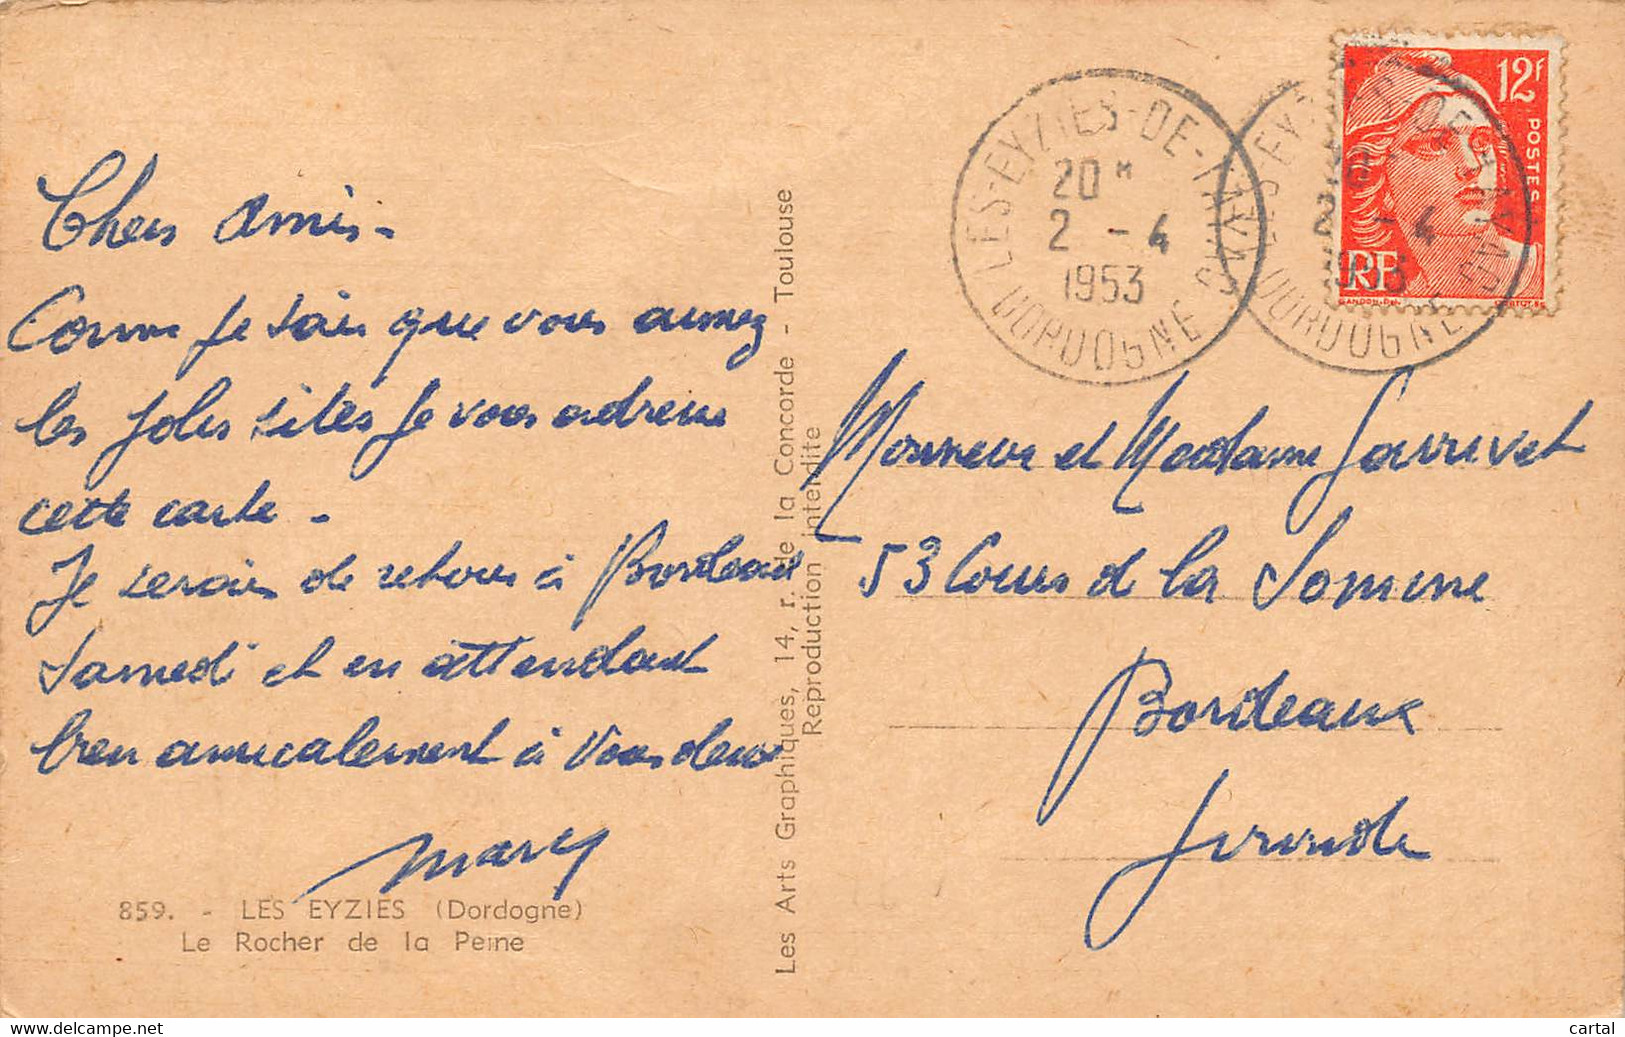 Chers Amis -
Comme je sais que vous aimez
les jolis sites je vous adresse
cette carte -
Je serais de retour à Bordeaux
Samedi et en attendant
bien amicalement à Vous deux
Marcy
859. - LES EYZIES (Dordogne)
Le Rocher de la Peine
Les Arts Graphiques, 14, r. de la Concorde - Toulouse
Reproduction interdite
LES-EYZIES-DE-TAYAC
20 H
2 - 4
1953
DORDOGNE
LES-EYZIES-DE-TAYAC
2 - 4
1953
DORDOGNE
12F
POSTES
RF
GANDON
Monsieur et Madame Garrivet
53 Cours de la Somme
Bordeaux
Gironde
www.delcampe.net
cartal